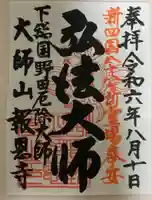 奉拝 令和六年八月十日
新四国八十八ヶ所霊場第一番
弘法大師
下総国野田厄除大師
大師山 報恩寺